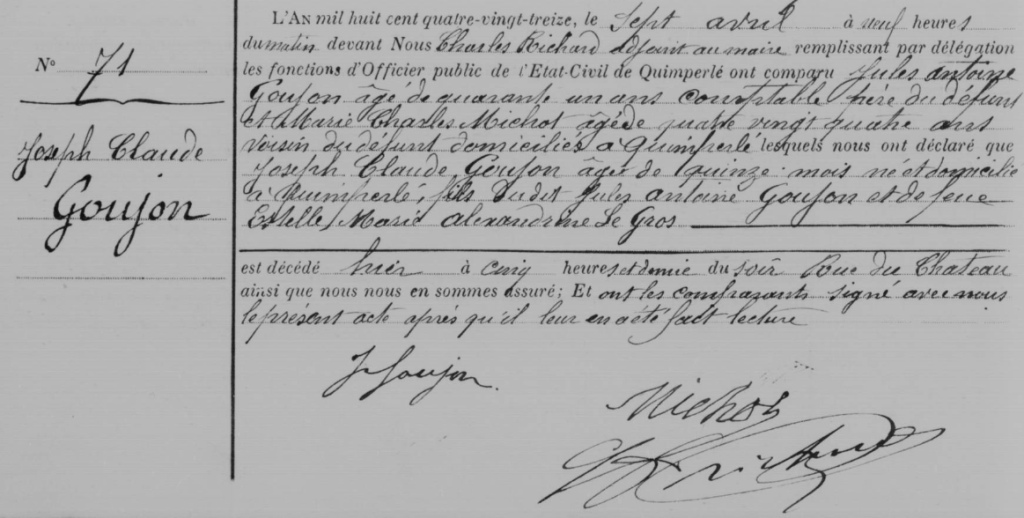 N° 71
Joseph Claude
Goujon
L'AN mil huit cent quatre-vingt-treize, le sept avril à neuf heures
du matin devant Nous Charles Richard adjoint au maire remplissant par délégation
les fonctions d'Officier public de l'Etat-Civil de Quimperlé ont comparu Jules Antoine
Goujon âgé de quarante un ans comptable père du défunt
et Marie Charles Michot âgé de quatre vingt quatre ans
voisin du défunt domiciliés à Quimperlé lesquels nous ont déclaré que
Joseph Claude Goujon âgé de quinze mois né et domicilié
à Quimperlé, fils dudit Jules Antoine Goujon et de feue
Estelle Marie Alexandrine Le Gros
est décédé hier à cinq heures et demie du soir Rue du Chateau
ainsi que nous nous en sommes assuré; Et ont les comparants signé avec nous
le présent acte après qu'il leur en a été fait lecture
J Goujon.
Michot
Ch Richard